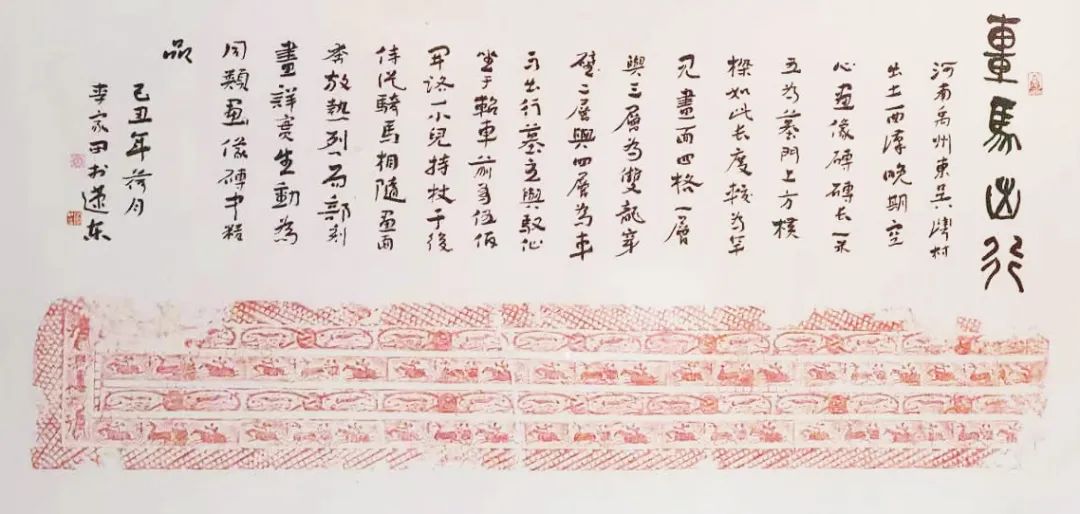 車馬出行
河南禹州東吳灣村
出土西漢晚期空
心畫像磚磚長一米
五為墓門上方横
樑如此长度較為罕
见畫面四格一層
與三層為雙龍穿
壁二層與四層為車
马出行墓主與馭
坐于軺車前有伍佰
开路一小兒持杖于後
侍从騎馬相隨畫面
奔放熱烈局部刻
畫詳实生動為
同類畫像磚中精
品
己丑年荷月
李家田书遼东